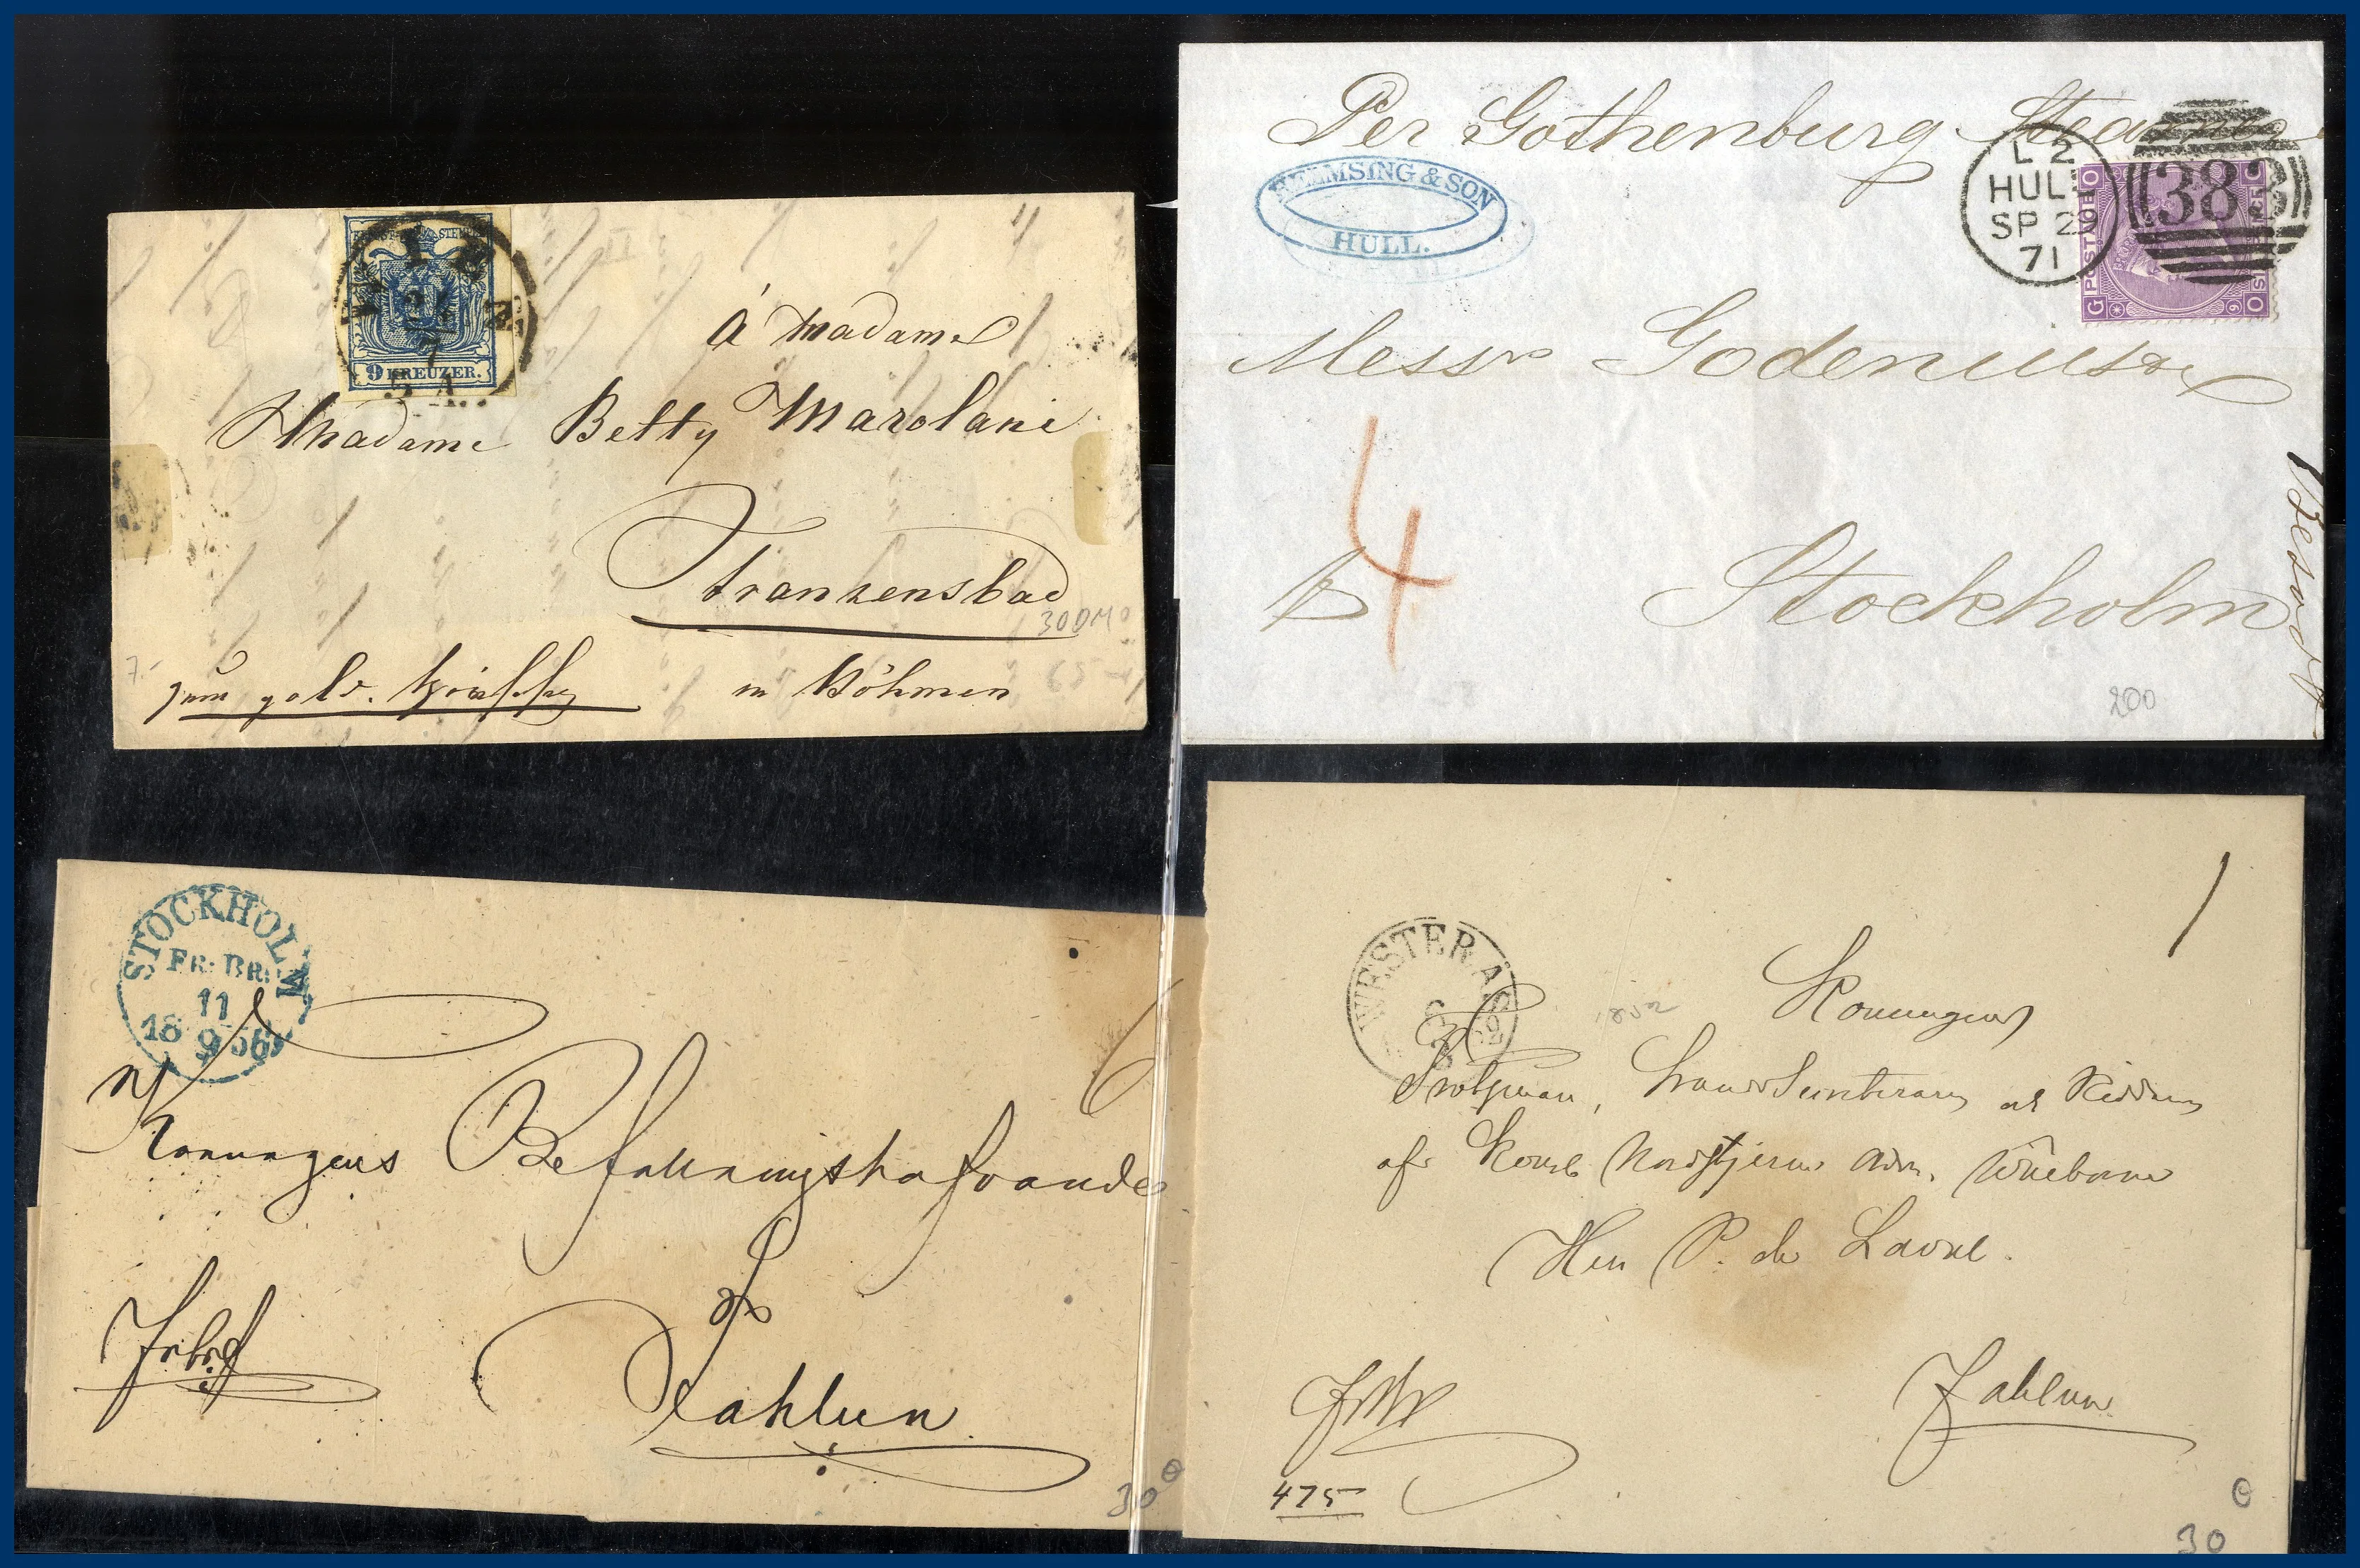 9 KREUZER.
à Madame
Madame Betty Marolani
Franzensbad
300M
zum gold.
in Böhmen
7-
65-
Per Gothenburg Steamer
HELMSING & SON
HULL.
L 2
HULL
SP 29
71
383
POSTAGE
G
O
9
Messrs
4
Stockholm
200
STOCKHOLM
FR: BR:
11
9
1856
Konungens Befallningshafvande
Fahlun
30
WESTERÅS
1852
Konungens
af Kongl Nordstjerne
Herr P. de Laval.
Fahlun
475
30